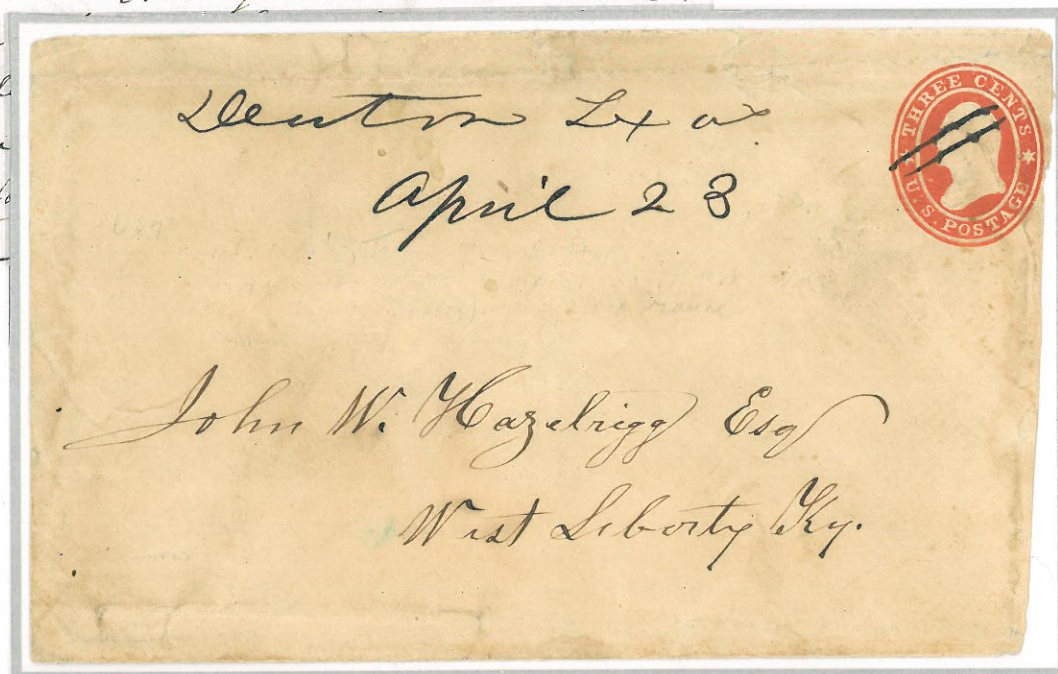 Denton Texas
April 23
THREE CENTS
U.S. POSTAGE
John W. Hazelrigg Esq
West Liberty Ky.